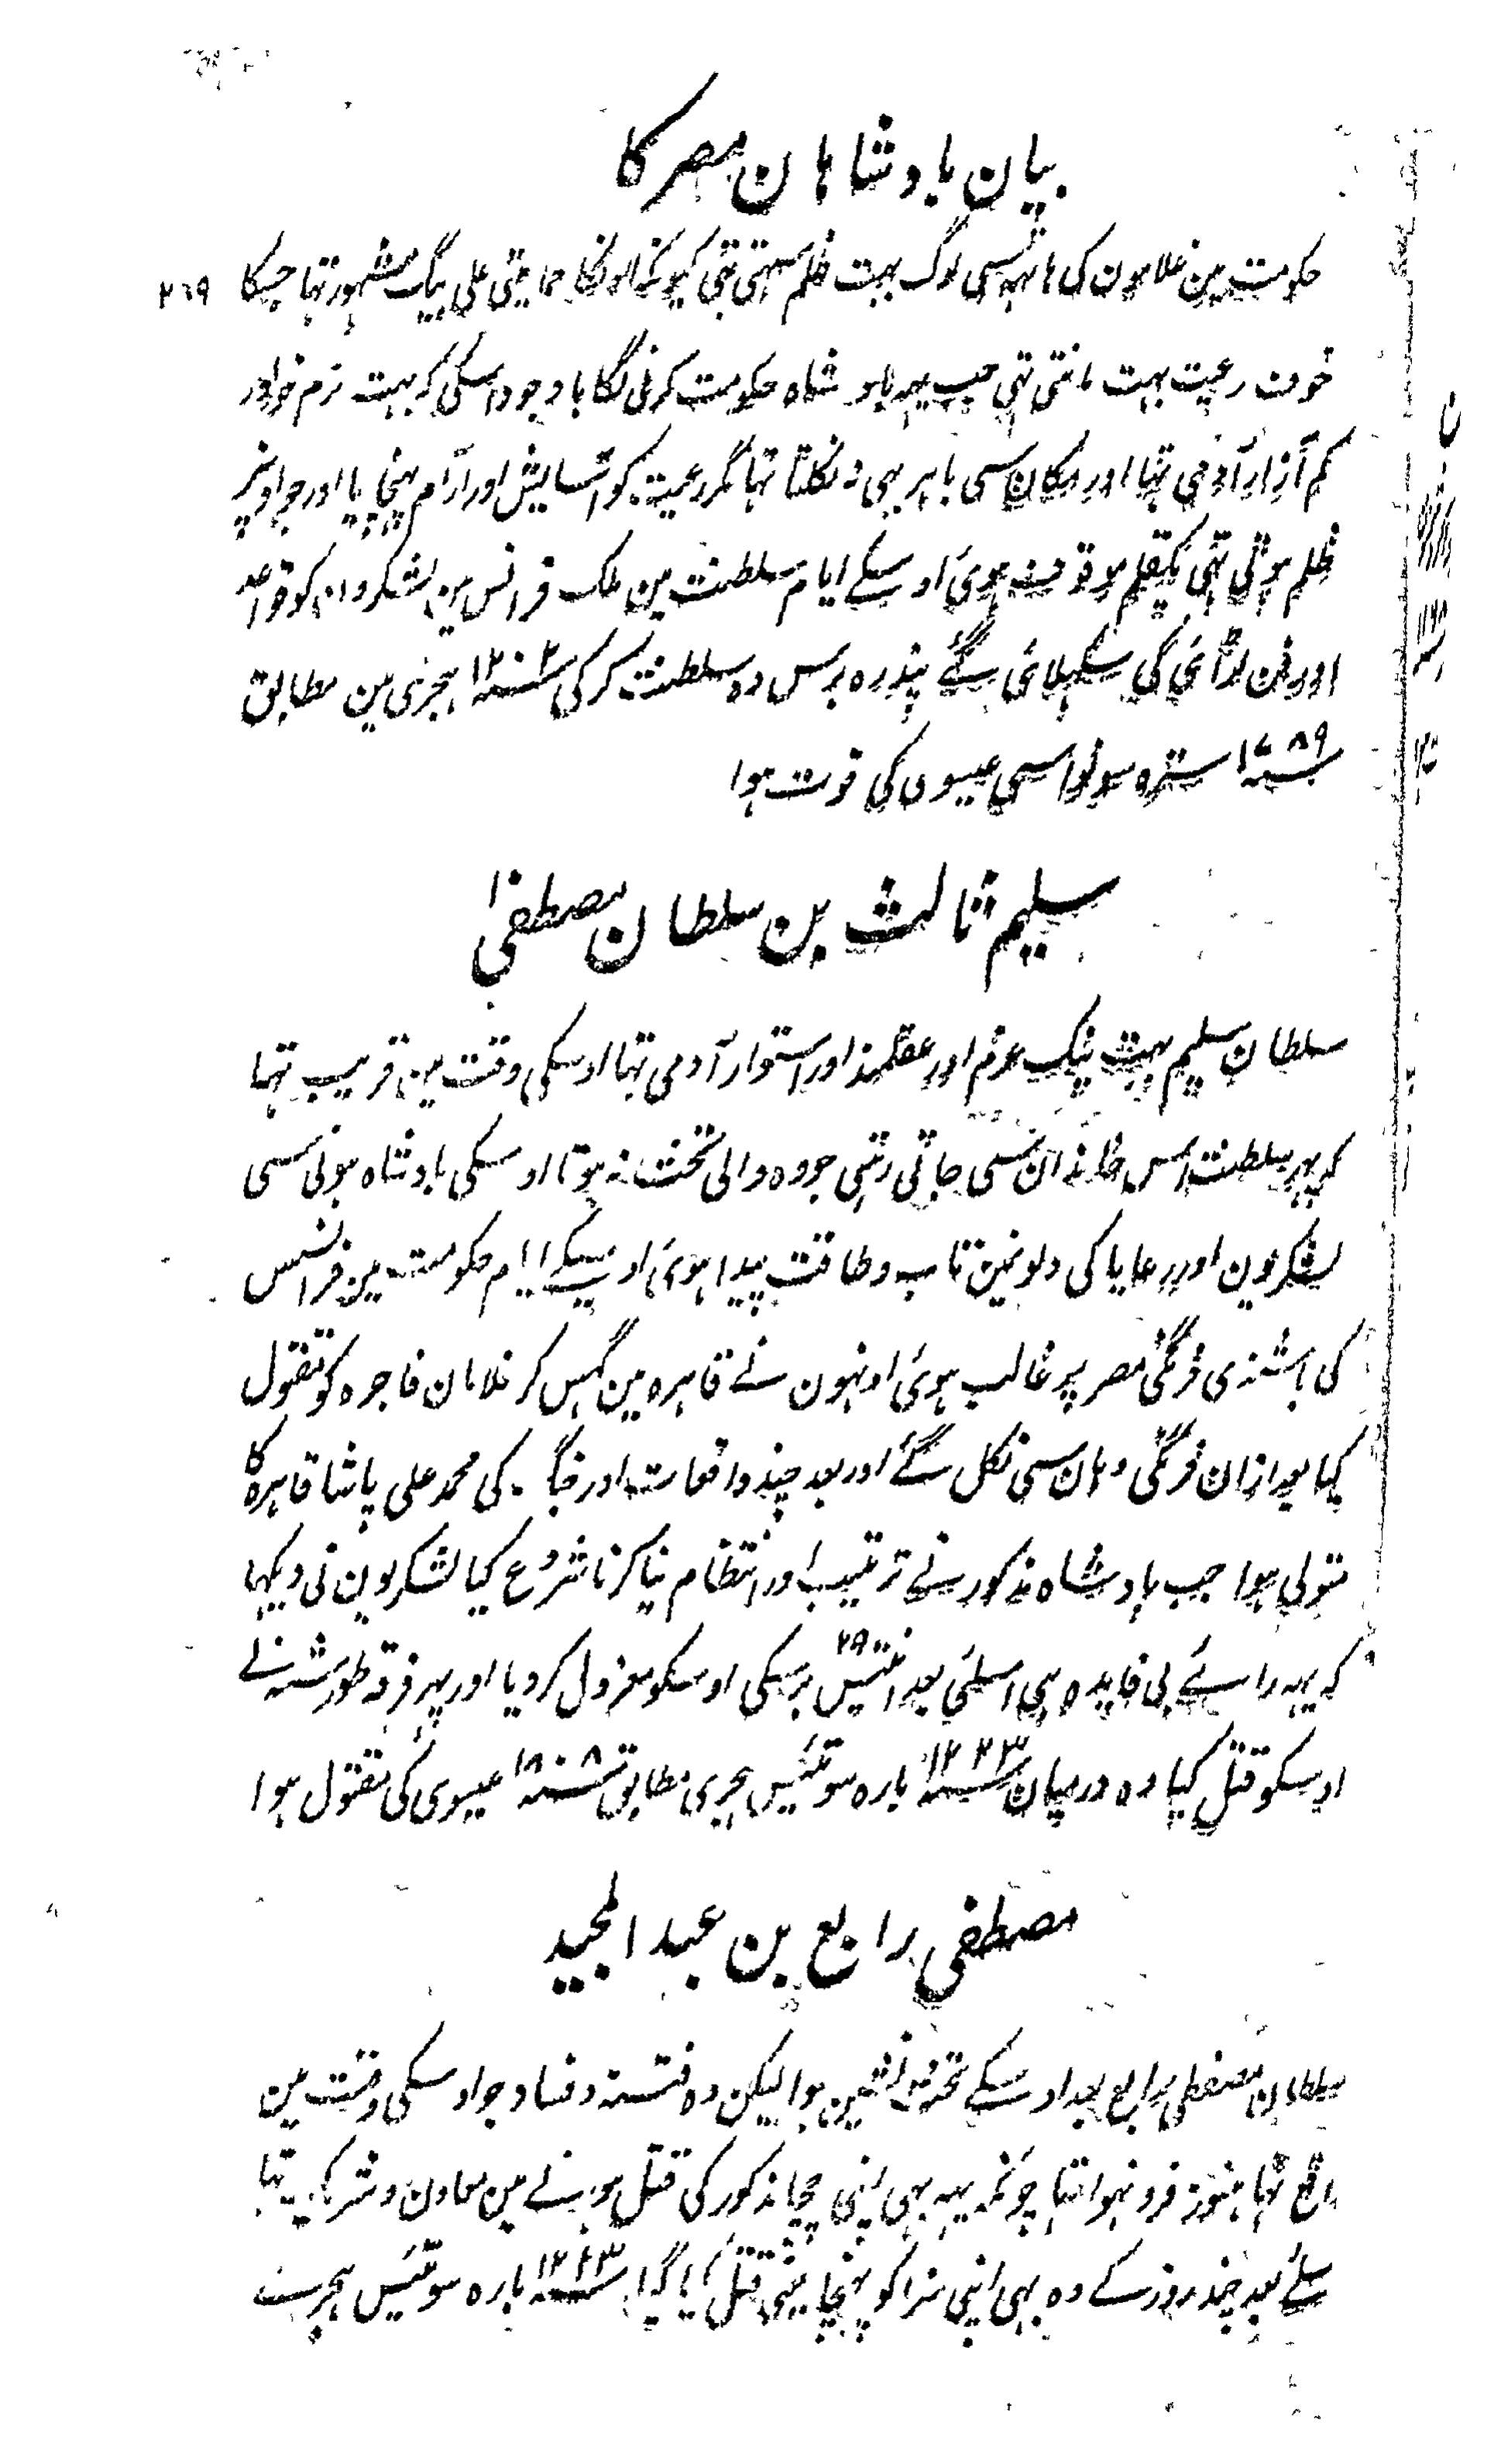 بیان بادشاہان مصر کا
حکومت مین غلامون کی ہاتہہ سی لوگ بہت ظلم سہتی تہی کیونکہ اونکا حمایتی علی بیگ مشہور تہا جسکا ۲۶۹
خوف رعیت بہت مانتی تہی جب یہہ بادشاہ حکومت کرنی لگا باوجود اسکی کہ بہت نرم خو اور
کم آزار آدمی تہا اور مکان سی باہر بہی نہ نکلتا تہا مگر رعیت کو آسایش اور آرام پہنچایا اور جو اونپر
ظلم ہوتی تہی یکقلم موقوف ہوئی اوسکے ایام سلطنت مین ملک فرانس مین لشکروان کو قواعد
اور فن لڑائی کی سکہلائی گئے پندرہ برس وہ سلطنت کر کی سنہ ۱۲۰۳ ہجری مین مطابق
سنہ ۱۷۸۹ سترہ سو نواسی عیسوی کی فوت ہوا
سلیم ثالث بن سلطان مصطفیٰ
سلطان سلیم بہت نیک عزم اور عقلمند اور استوار آدمی تہا اوسکی وقت مین قریب تہا
کہ یہہ سلطنت اس خاندان سی جاتی رہتی جو وہ والی تخت نہ ہوتا اوسکی بادشاہ ہونی سی
لشکریون اور رعایا کی دلونمین تاب و طاقت پیدا ہوئی اوسکے ایام حکومت مین فرانسس
کی باشندی فرنگی مصر پر غالب ہوئی اونہون نے قاہرہ مین گہس کر غلامان فاجرہ کو مقتول
کیا بعد ازان فرنگی وہان سی نکل گئے اور بعد چند واقعات اور جنگ کی محمد علی پاشا قاہرہ کا
متولی ہوا جب بادشاہ مذکور نے ترتیب اور انتظام نیا کرنا شروع کیا لشکریون نی دیکہا
کہ یہہ رائے بی فایدہ ہی اسلئی بعد انتیس ۲۹ برسکی اوسکو معزول کر دیا اور پہر فرقہ طورشنہ نے
اوسکو قتل کیا وہ درمیان سنہ ۱۲۲۳ بارہ سو تئیس ہجری مطابق سنہ ۱۸۰۸ عیسوی کی مقتول ہوا
مصطفی رابع بن عبد المجید
سلطان مصطفی رابع بعد اوسکے تخت نشین ہوا لیکن وہ فتنہ و فساد جو اوسکی وقت مین
واقع تہا ہنوز فرو نہوا تہا چونکہ یہہ بہی اپنی چچا مذکور کی قتل ہونے مین معاون و شریک تہا
سلئے بعد چند روز کے وہ بہی اپنی سزا کو پہنچا یعنی قتل کیا گیا سنہ ۱۲۲۳ بارہ سو تئیس ہجرے